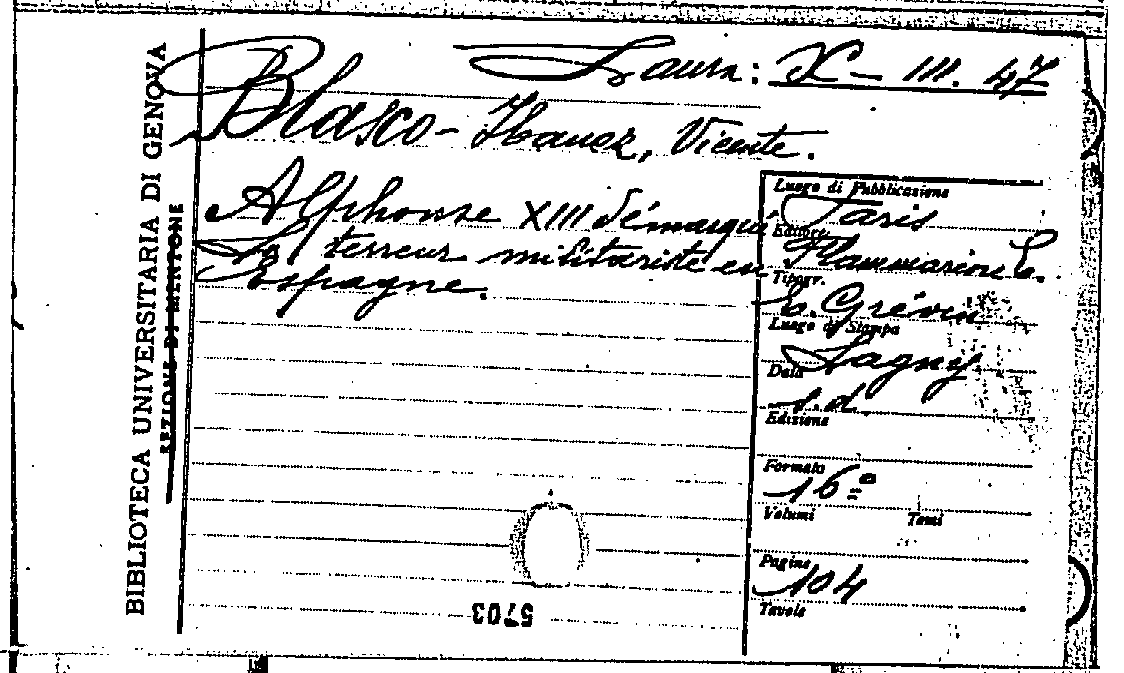 BIBLIOTECA UNIVERSITARIA DI GENOVA
SEZIONE DI MENTONE
Laura: X - III. 47
Blasco-Ibanez, Vicente.
Alphonse XIII démarqué
La terreur militariste en
Espagne.
Luogo di Pubblicazione
Paris
Editore
Flammarion E.
Tipogr.
E. Grévin
Luogo di Stampa
Lagny
Data
s.d.
Edizione
Formato
16º
Volumi Tomi
Pagine
104
Tavole
5703